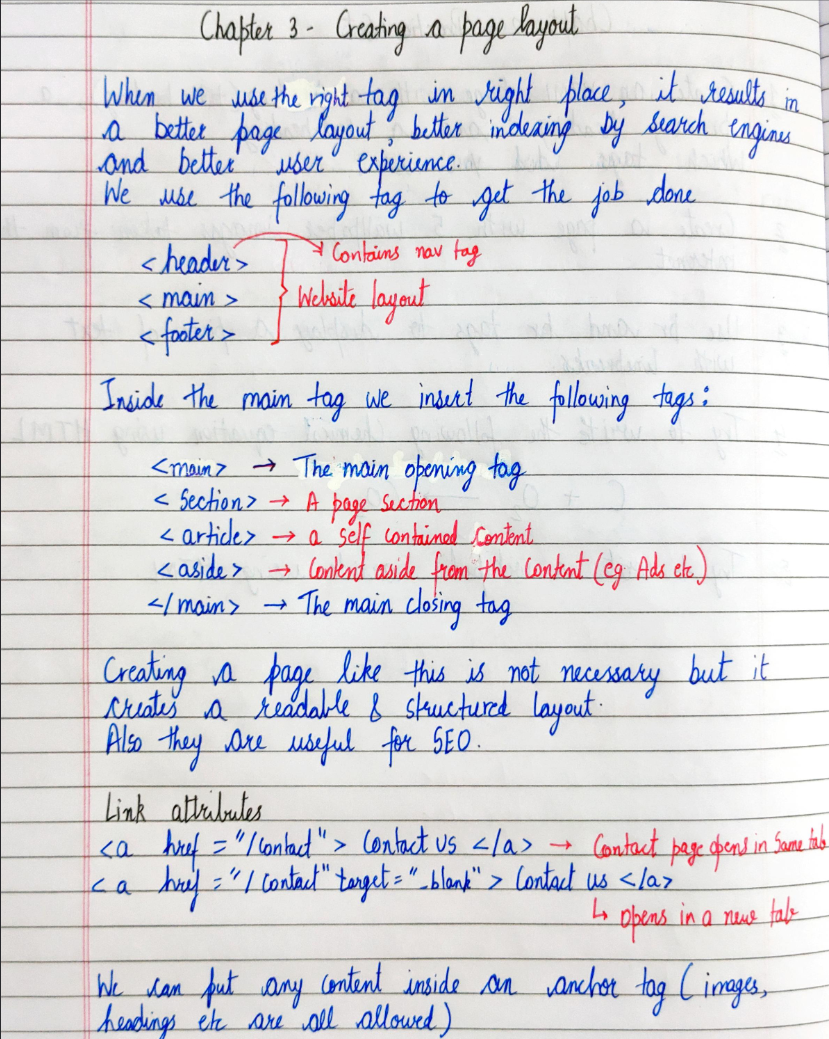 Chapter 3 - Creating a page layout
When we use the right tag in right place, it results in
a better page layout, better indexing by search engines
and better user experience.
We use the following tag to get the job done
<header> → Contains nav tag
<main> Website layout
<footer>
Inside the main tag we insert the following tags:
<main> → The main opening tag
<section> → A page section
<article> → a self contained content
<aside> → Content aside from the content (eg Ads etc)
</main> → The main closing tag
Creating a page like this is not necessary but it
creates a readable & structured layout.
Also they are useful for SEO.
Link attributes
<a href = "/contact"> Contact us </a> → Contact page opens in same tab
<a href = "/contact" target = "_blank"> Contact us </a>
↳ opens in a new tab
We can put any content inside an anchor tag (images,
headings etc are all allowed)